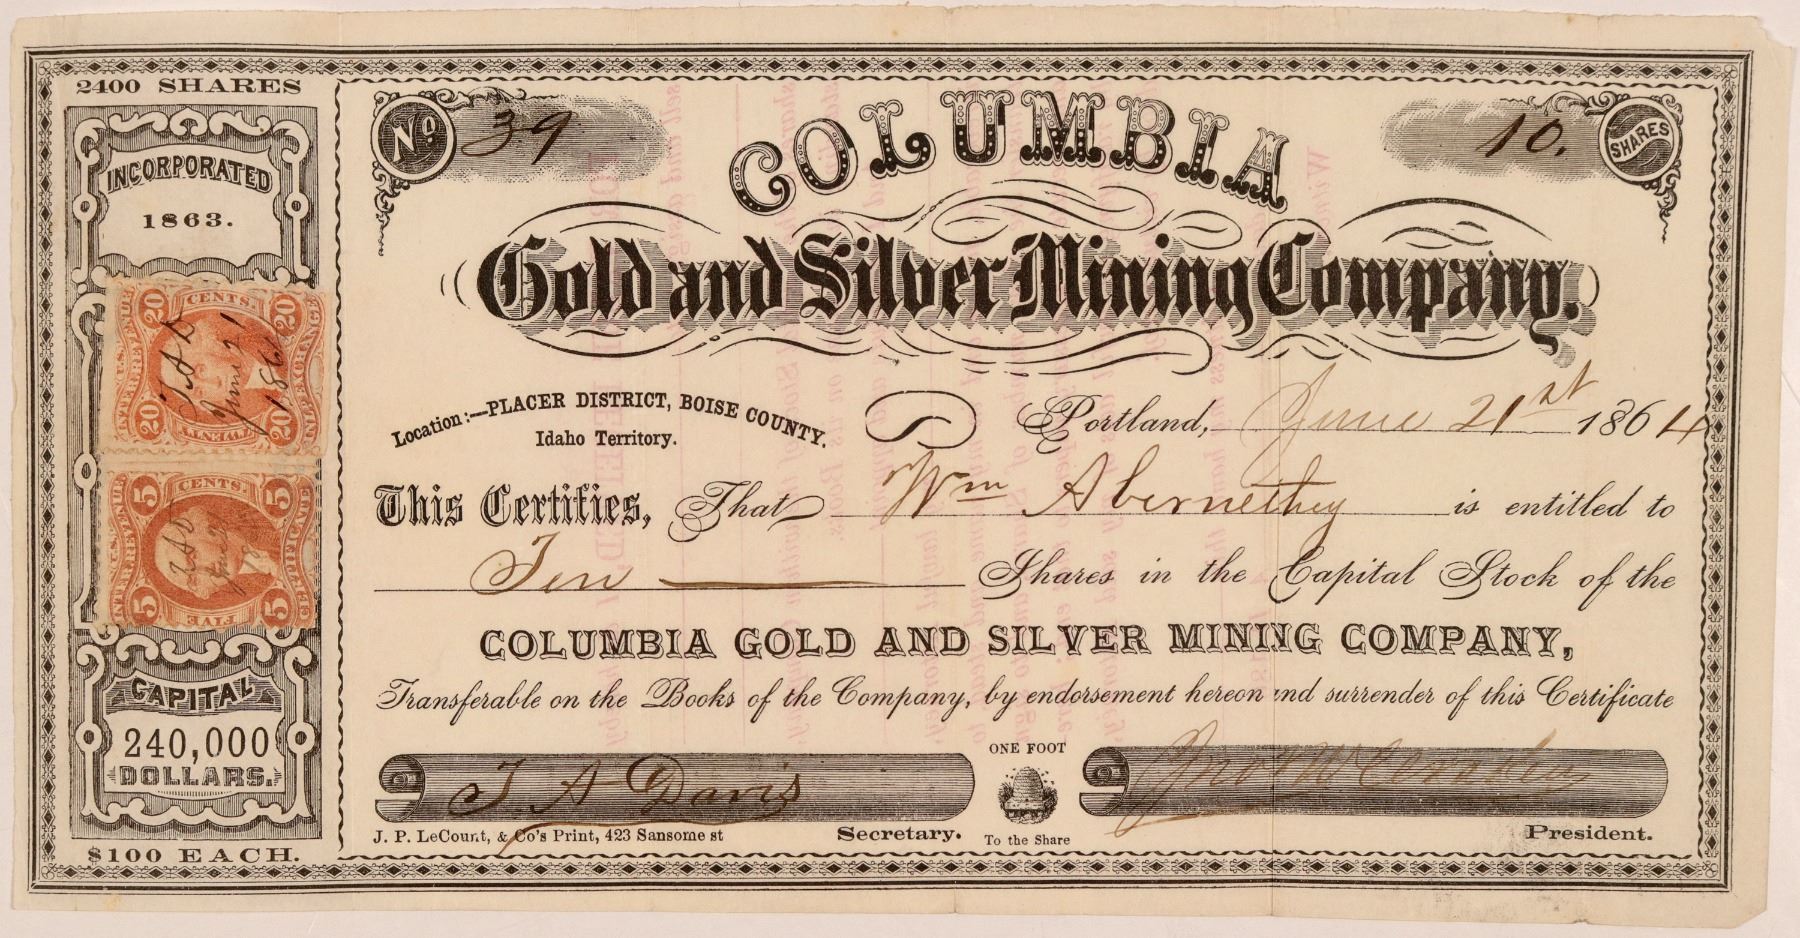 2400 SHARES
INCORPORATED
1863.
20 CENTS. 20
U.S. INTER. REVENUE
INL. EXCHANGE
T A D
June 21
1864
20 TWENTY 20
5 CENTS. 5
U.S. INTER. REVENUE
CERTIFICATE
TAD
June 21
5 FIVE 5
CAPITAL
240,000
DOLLARS.
$100 EACH.
No 39
10. SHARES
COLUMBIA
Gold and Silver Mining Company.
Location:—PLACER DISTRICT, BOISE COUNTY.
Idaho Territory.
Portland, June 21st 1864
This Certifies, That Wm Abernethy is entitled to
Ten Shares in the Capital Stock of the
COLUMBIA GOLD AND SILVER MINING COMPANY,
Transferable on the Books of the Company, by endorsement hereon and surrender of this Certificate
T. A Davis
Secretary.
ONE FOOT
To the Share
President.
J. P. LeCount, & Co's Print, 423 Sansome st